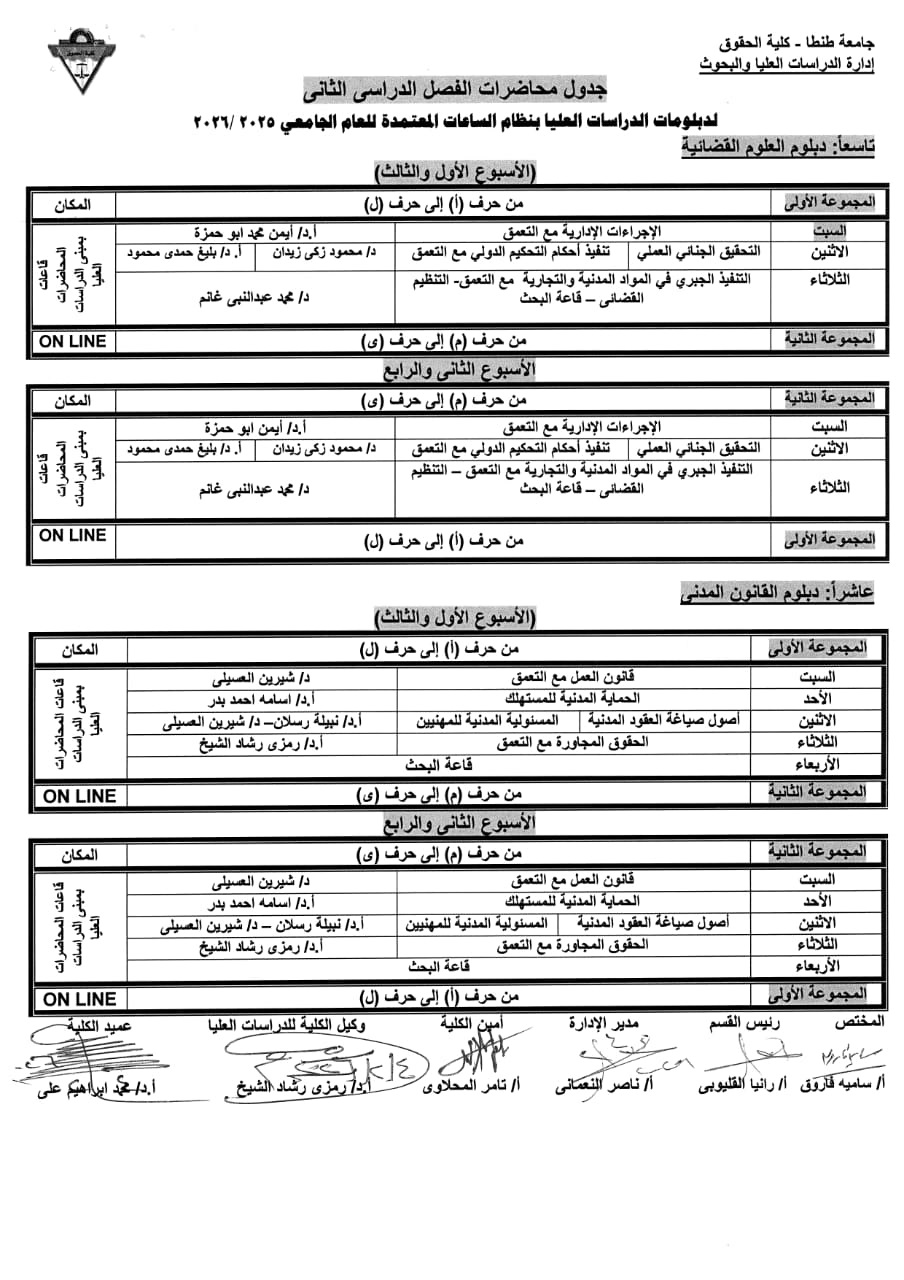 جامعة طنطا - كلية الحقوق
إدارة الدراسات العليا والبحوث
كلية الحقوق
جدول محاضرات الفصل الدراسى الثانى
لدبلومات الدراسات العليا بنظام الساعات المعتمدة للعام الجامعي ٢٠٢٥ /٢٠٢٦
تاسعاً: دبلوم العلوم القضائية
(الأسبوع الأول والثالث)
المجموعة الأولى من حرف (أ) إلى حرف (ل) المكان
السبت الإجراءات الإدارية مع التعمق أ.د/ أيمن محمد ابو حمزة
الاثنين التحقيق الجنائي العملي تنفيذ أحكام التحكيم الدولي مع التعمق د/ محمود زكى زيدان أ. د/ بليغ حمدى محمود
الثلاثاء التنفيذ الجبري في المواد المدنية والتجارية مع التعمق- التنظيم
القضائى – قاعة البحث د/ محمد عبدالنبى غانم
قاعات المحاضرات بمبنى الدراسات العليا
المجموعة الثانية من حرف (م) إلى حرف (ى) ON LINE
الأسبوع الثانى والرابع
المجموعة الثانية من حرف (م) إلى حرف (ى) المكان
السبت الإجراءات الإدارية مع التعمق أ.د/ أيمن ابو حمزة
الاثنين التحقيق الجنائي العملي تنفيذ أحكام التحكيم الدولي مع التعمق د/ محمود زكى زيدان أ. د/ بليغ حمدى محمود
الثلاثاء التنفيذ الجبري في المواد المدنية والتجارية مع التعمق – التنظيم
القضائى – قاعة البحث د/ محمد عبدالنبى غانم
قاعات المحاضرات بمبنى الدراسات العليا
المجموعة الأولى من حرف (أ) إلى حرف (ل) ON LINE
عاشراً: دبلوم القانون المدنى
(الأسبوع الأول والثالث)
المجموعة الأولى من حرف (أ) إلى حرف (ل) المكان
السبت قانون العمل مع التعمق د/ شيرين العسيلى
الأحد الحماية المدنية للمستهلك أ.د/ اسامه احمد بدر
الاثنين أصول صياغة العقود المدنية المسئولية المدنية للمهنيين أ.د/ نبيلة رسلان– د/ شيرين العسيلى
الثلاثاء الحقوق المجاورة مع التعمق أ.د/ رمزى رشاد الشيخ
الأربعاء قاعة البحث
قاعات المحاضرات بمبنى الدراسات العليا
المجموعة الثانية من حرف (م) إلى حرف (ى) ON LINE
الأسبوع الثانى والرابع
المجموعة الثانية من حرف (م) إلى حرف (ى) المكان
السبت قانون العمل مع التعمق د/ شيرين العسيلى
الأحد الحماية المدنية للمستهلك أ.د/ اسامه احمد بدر
الاثنين أصول صياغة العقود المدنية المسئولية المدنية للمهنيين أ.د/ نبيلة رسلان – د/ شيرين العسيلى
الثلاثاء الحقوق المجاورة مع التعمق أ.د/ رمزى رشاد الشيخ
الأربعاء قاعة البحث
قاعات المحاضرات بمبنى الدراسات العليا
المجموعة الأولى من حرف (أ) إلى حرف (ل) ON LINE
المختص رئيس القسم مدير الإدارة أمين الكلية وكيل الكلية للدراسات العليا عميد الكلية
أ/ ساميه فاروق أ/ رانيا القليوبى أ/ ناصر النعمانى أ/ تامر المحلاوى أ.د/ رمزى رشاد الشيخ أ.د/ محمد ابراهيم على